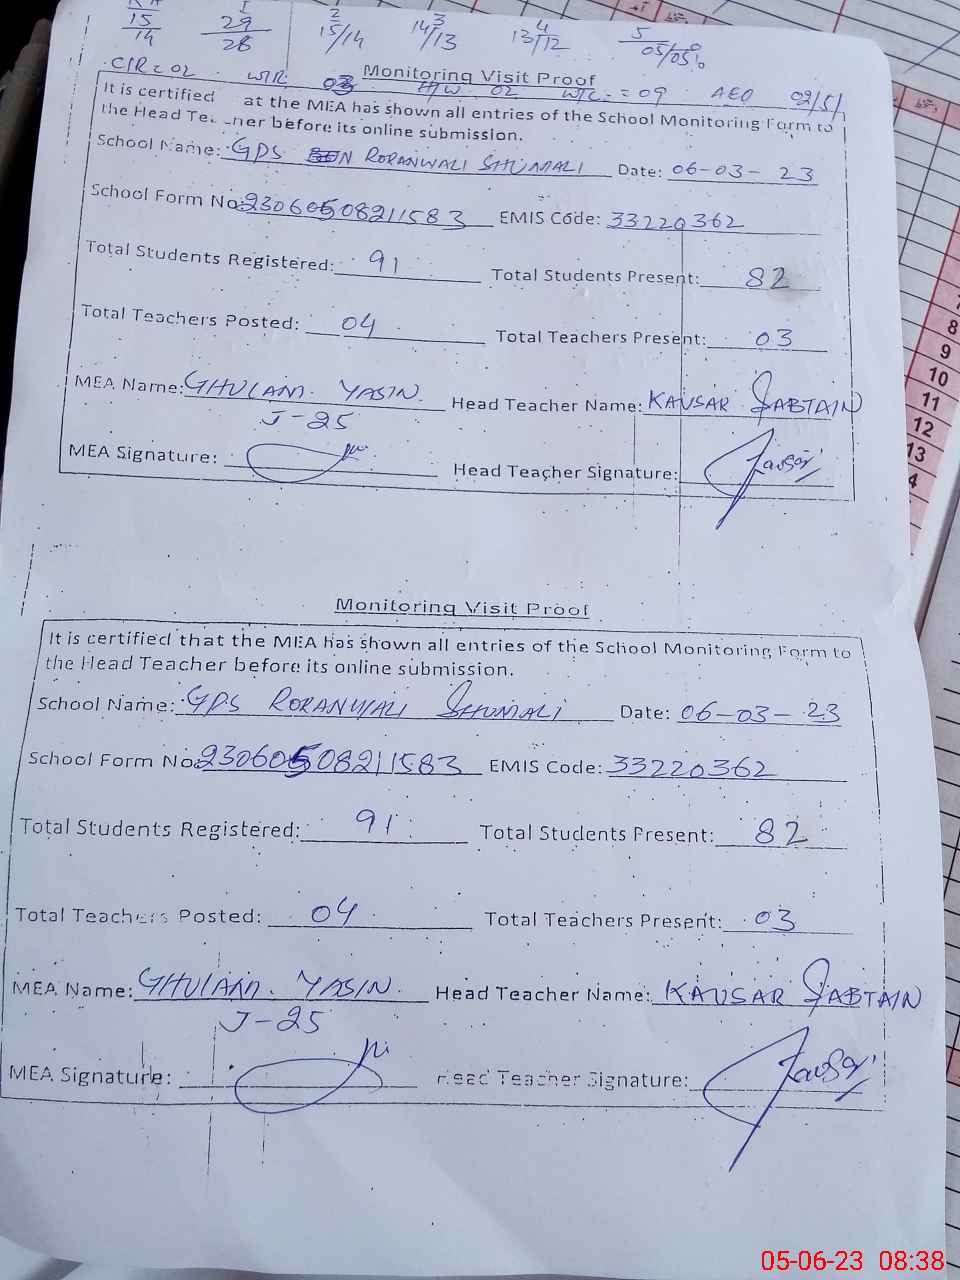 15/14 I 29/28 2 15/14 3 14/13 4 13/12 5 05/05
CIR = 02 WR 03 H/W 02 WTC = 09 AEO 02/5/
Monitoring Visit Proof
It is certified at the MEA has shown all entries of the School Monitoring Form to
the Head Te ner before its online submission.
School Name: GPS RORANWALI SHUMALI Date: 06-03-23
School Form No: 23060508211583 EMIS Code: 33220362
Total Students Registered: 91 Total Students Present: 82
Total Teachers Posted: 04 Total Teachers Present: 03
MEA Name: GHULAM. YASIN. Head Teacher Name: KAUSAR SABTAIN
J-25
MEA Signature: Head Teacher Signature: Kausar
Monitoring Visit Proof
It is certified that the MEA has shown all entries of the School Monitoring Form to
the Head Teacher before its online submission.
School Name: GPS RORANWALI SHUMALI Date: 06-03-23
School Form No: 23060508211583 EMIS Code: 33220362
Total Students Registered: 91 Total Students Present: 82
Total Teachers Posted: 04 Total Teachers Present: 03
MEA Name: GHULAM. YASIN. Head Teacher Name: KAUSAR SABTAIN
J-25
MEA Signature: Head Teacher Signature: Kausar
7
8
9
10
11
12
13
4
05-06-23 08:38